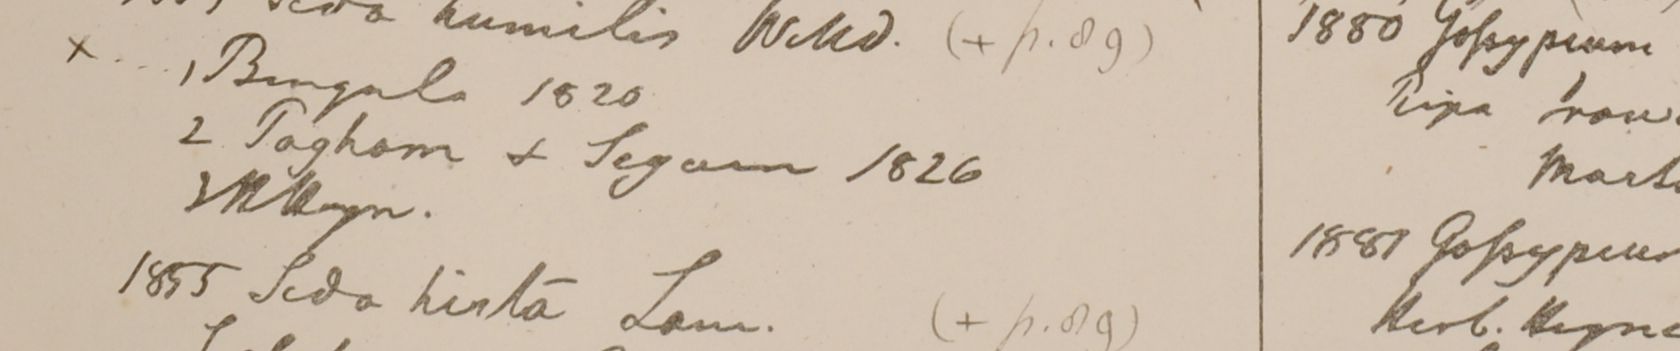 Seda humilis Willd. (+ p. 89)
x .... 1 Bungula 1820
2 Taghom & Segaun 1826
1855 Seda hirta Lam. (+ p. 89)
1880 Gossypium
Ripa
Mart
1881 Gossypium
Herb. Heyne